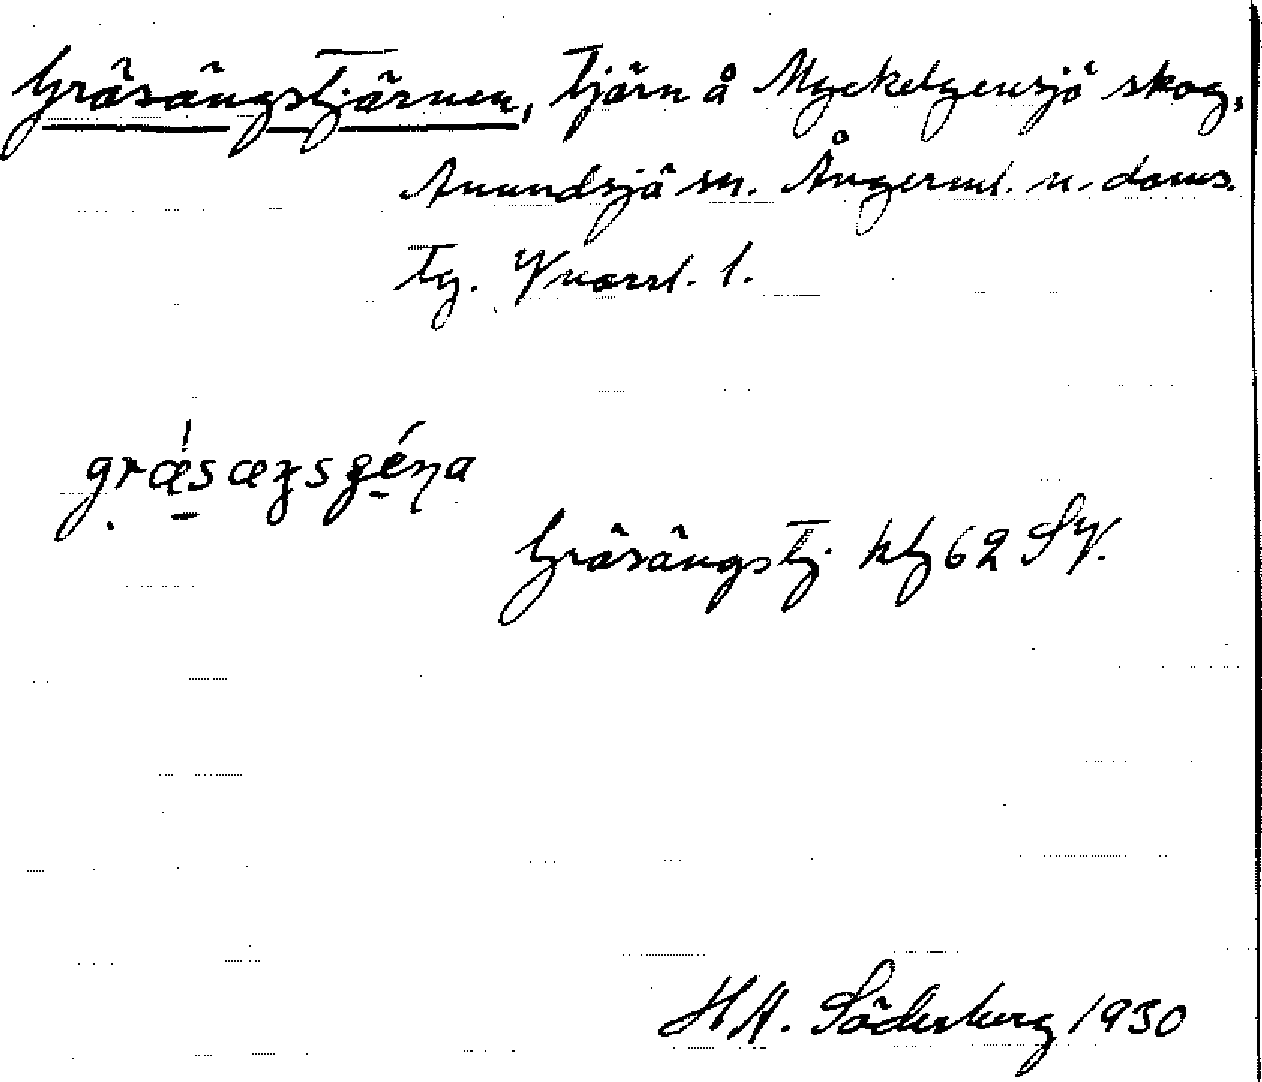 Gräsängstjärnen, Tjärn å Myckelgensjö skog,
Anundsjö sn. Ångerml. n. doms.
Tg. Vnorrl. l.
Gräsängstj. kbl 62 SV.
HA. Söderberg 1930